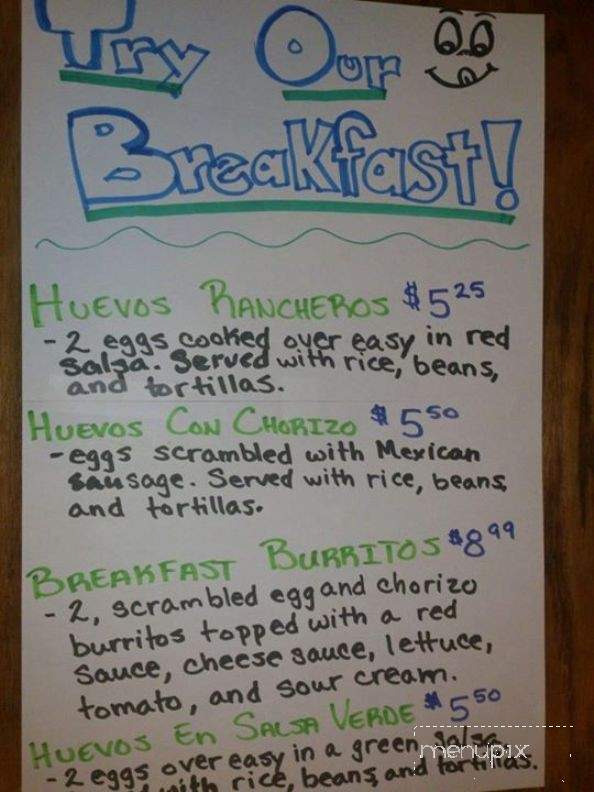 Try Our
Breakfast!
HUEVOS RANCHEROS $5 25
- 2 eggs cooked over easy in red
salsa. Served with rice, beans,
and tortillas.
HUEVOS CON CHORIZO $5 50
- eggs scrambled with Mexican
sausage. Served with rice, beans,
and tortillas.
BREAKFAST BURRITOS $8 99
- 2, scrambled egg and chorizo
burritos topped with a red
sauce, cheese sauce, lettuce,
tomato, and sour cream.
HUEVOS EN SALSA VERDE $5 50
- 2 eggs over easy in a green salsa
with rice, beans, and tortillas.
menupix